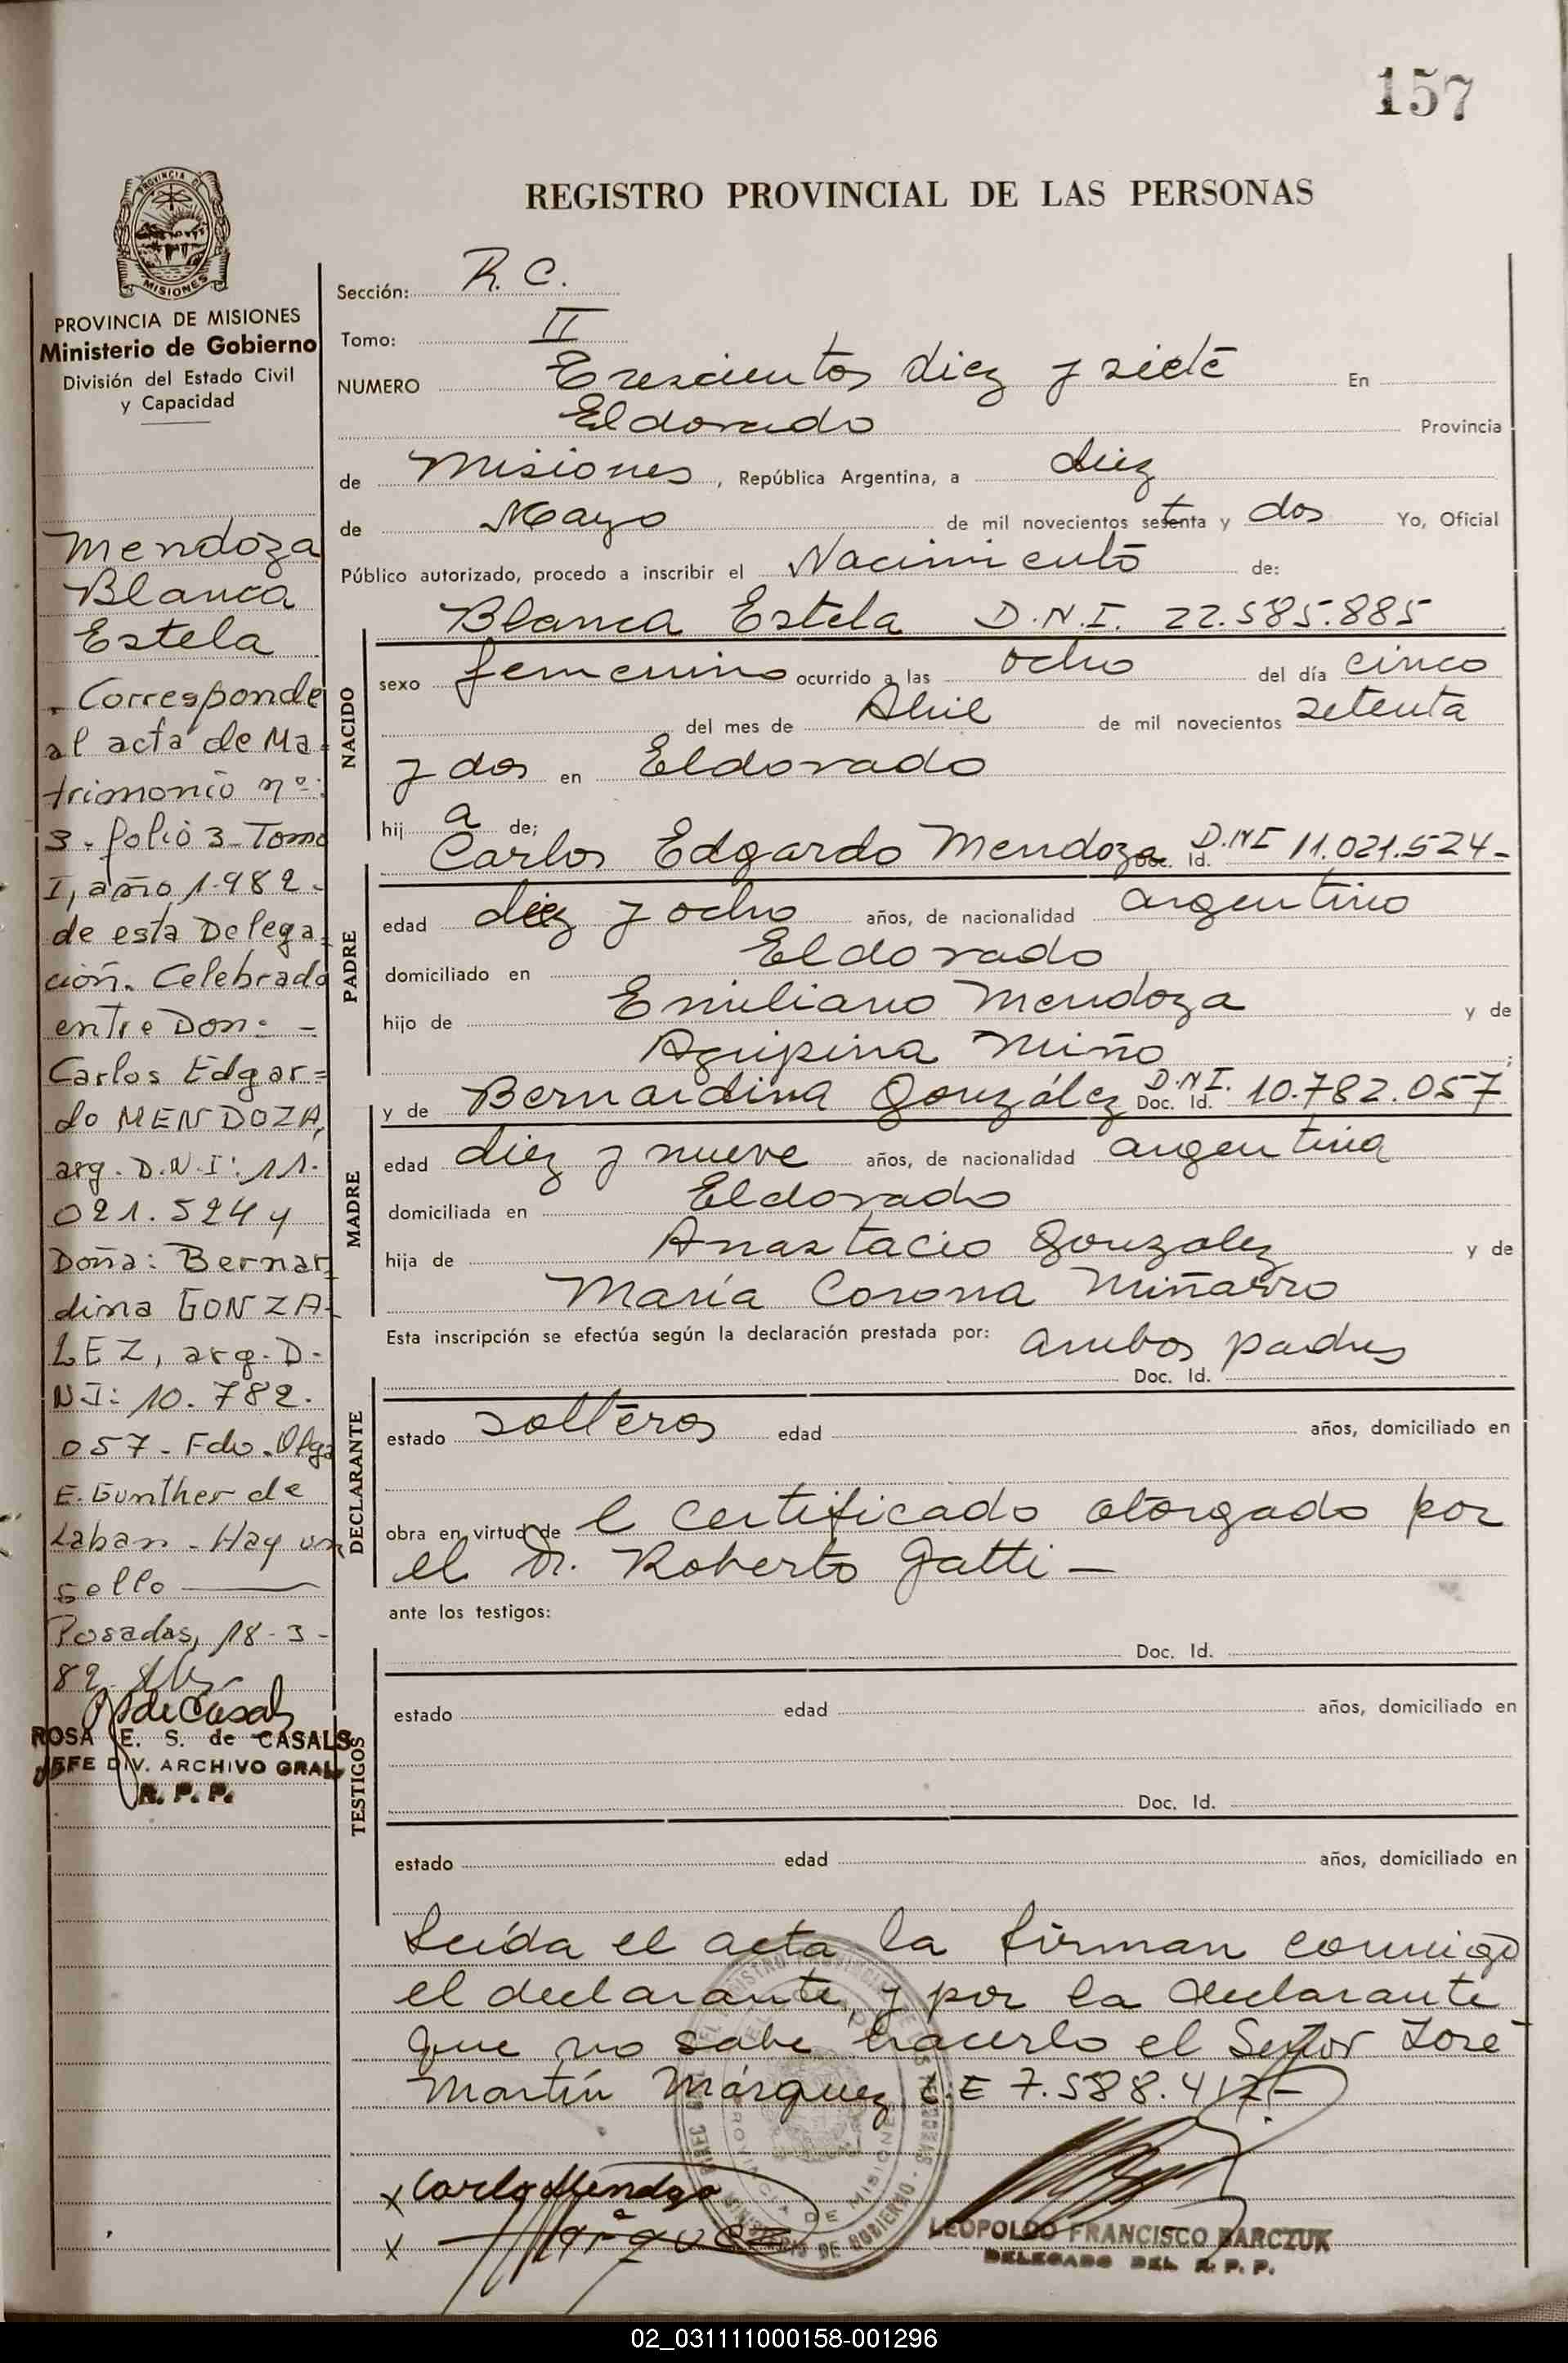 157
REGISTRO PROVINCIAL DE LAS PERSONAS
PROVINCIA DE
MISIONES
PROVINCIA DE MISIONES
Ministerio de Gobierno
División del Estado Civil
y Capacidad
Mendoza
Blanca
Estela
. Corresponde
al acta de Ma-
trimonio nº:
3. folio 3-Tomo
I, año 1.982.
de esta Delega
ción. Celebrado
entre Don: -
Carlos Edgar=
do MENDOZA,
arg. D.N.I: 11.
021.524 y
Doña: Bernar
dina GONZA-
LEZ, arg. D.
NI: 10.782.
057- Fdo. Olga
E. Gunther de
Laban - Hay un
sello
Posadas, 18-3-
82
de Casals
ROSA E. S. de CASALS
JEFE DIV. ARCHIVO GRAL.
R. P. P.
Sección: R. C.
Tomo: II
NUMERO Trescientos diez y siete En
Eldorado Provincia
de Misiones, República Argentina, a diez
de Mayo de mil novecientos setenta y dos Yo, Oficial
Público autorizado, procedo a inscribir el Nacimiento de:
Blanca Estela D.N.I. 22.585.885
NACIDO
sexo femenino ocurrido a las ocho del día cinco
del mes de Abril de mil novecientos setenta
y dos en Eldorado
hij a de;
Carlos Edgardo Mendoza Doc. Id. D.N.I 11.021.524-
PADRE
edad diez y ocho años, de nacionalidad argentino
domiciliado en Eldorado
hijo de Emiliano Mendoza y de
Agripina Miño ;
y de Bernardina González Doc. Id. D.N.I. 10.782.057
MADRE
edad diez y nueve años, de nacionalidad argentina
domiciliada en Eldorado
hija de Anastacio Gonzalez y de
María Corona Miñarro
Esta inscripción se efectúa según la declaración prestada por: ambos padres
Doc. Id.
DECLARANTE
estado solteros edad años, domiciliado en
obra en virtud de l certificado otorgado por
el Dr. Roberto Gatti -
ante los testigos:
Doc. Id.
TESTIGOS
estado edad años, domiciliado en
Doc. Id.
estado edad años, domiciliado en
Leída el acta la firman conmigo
el declarante, y por la declarante
que no sabe hacerlo el Señor José
Martín Márquez L.E 7.588.417-
x Carlos Mendoza
x Márquez
LEOPOLDO FRANCISCO BARCZUK
DELEGADO DEL R. P. P.
02_031111000158-001296